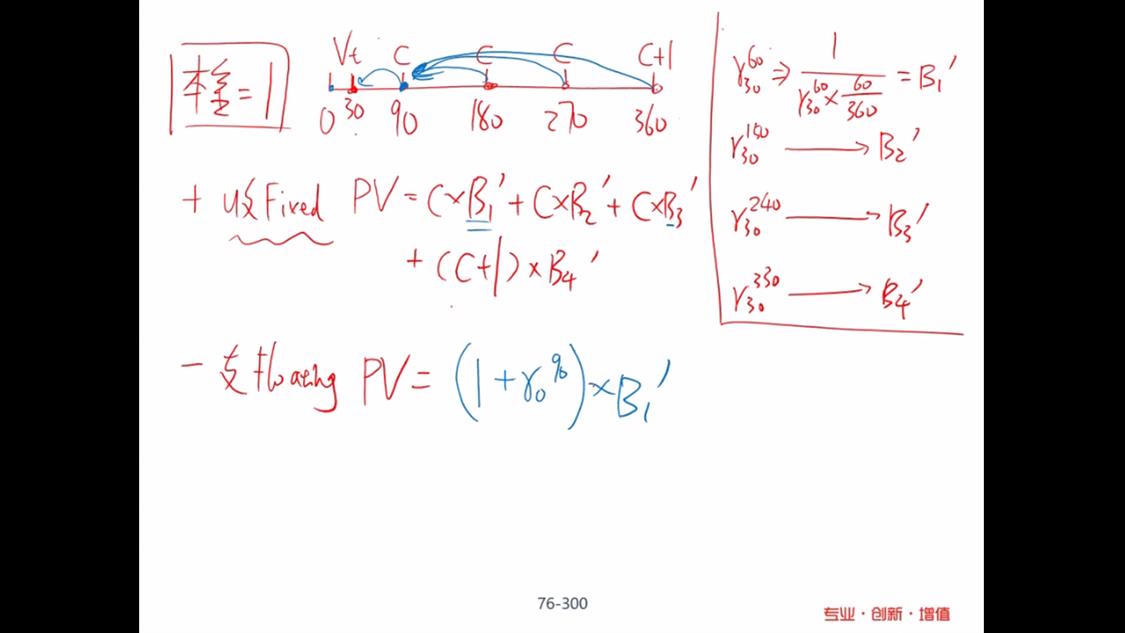 本金=1
Vt C C C C+1
0 30 90 180 270 360
+ 收Fixed PV = C×B₁′ + C×B₂′ + C×B₃′
+ (C+1)×B₄′
− 支floating PV = (1+γ₀⁹⁰)×B₁′
γ₃₀⁶⁰ ⇒ 1/(γ₃₀⁶⁰×60/360) = B₁′
γ₃₀¹⁵⁰ → B₂′
γ₃₀²⁴⁰ → B₃′
γ₃₀³³⁰ → B₄′
76-300
专业·创新·增值